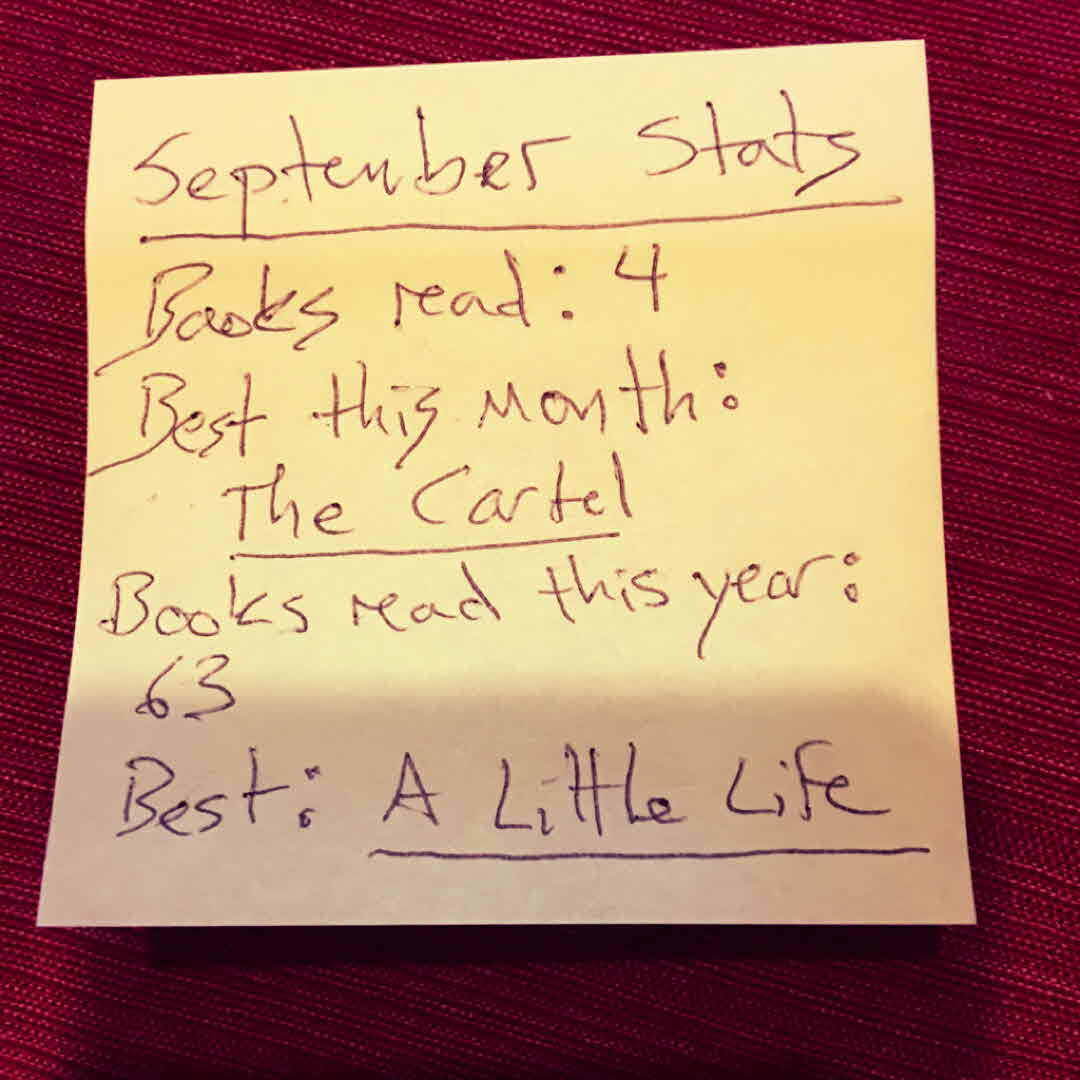 September Stats
Books read: 4
Best this Month:
The Cartel
Books read this year:
63
Best: A Little Life